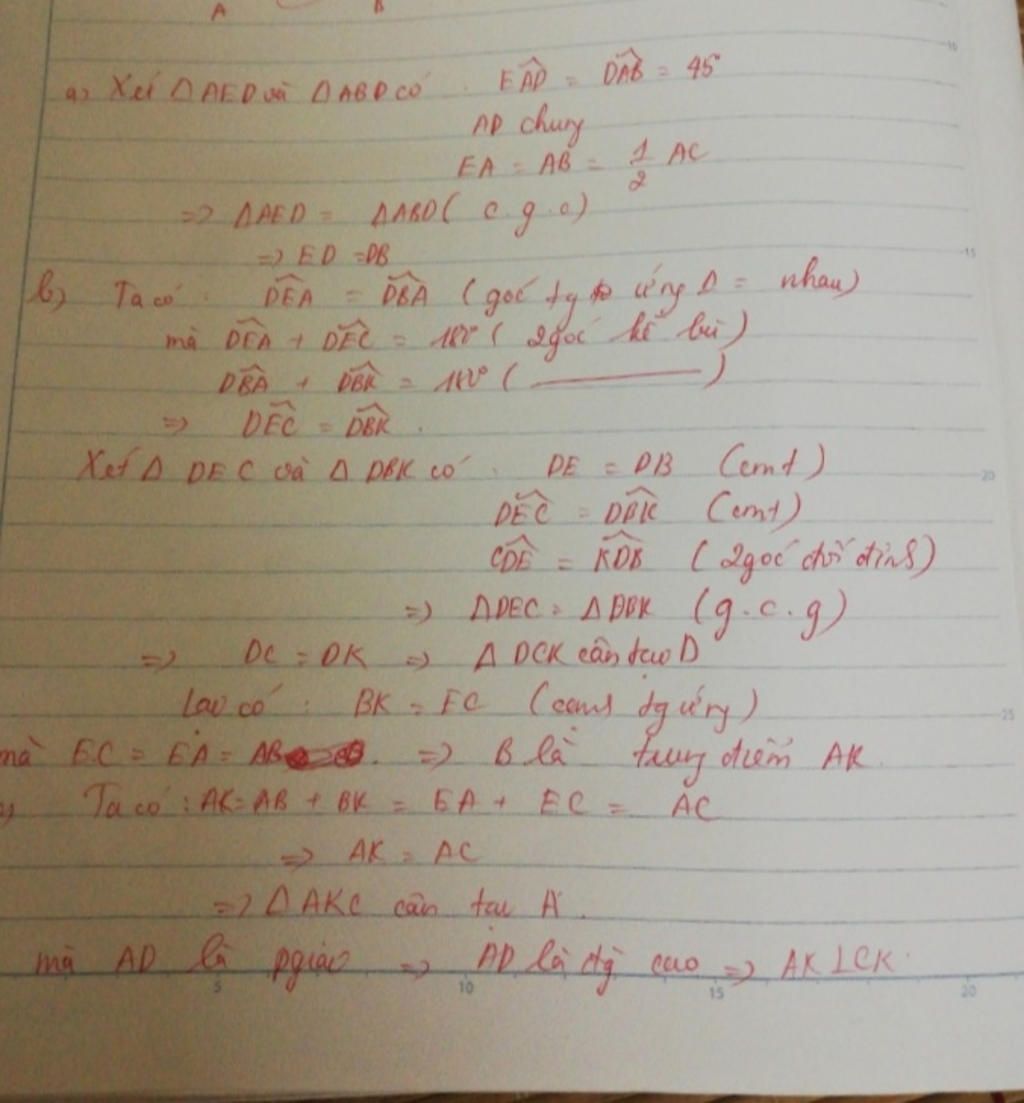 A B
a) Xét △AED và △ABD có: EAD = DAB = 45°
AD chung
EA = AB = 1/2 AC
=> △AED = △ABD ( c.g.c)
=> ED = DB
b) Ta có: DEA = DBA (góc tg ứng △ = nhau)
mà DEA + DEC = 180° ( 2 góc kề bù)
DBA + DBK = 180° ( ——— )
=> DEC = DBK.
Xét △ DEC và △ DBK có: DE = DB (cmt)
DEC = DBK (cmt)
CDE = KDB ( 2 góc đối đỉnh)
=> △DEC = △DBK (g.c.g)
=> DC = DK => △ DCK cân tại D
Lại có: BK = EC (cạnh tg ứng)
mà EC = EA = AB . => B là trung điểm AK.
Ta có: AK = AB + BK = EA + EC = AC
=> AK = AC
=> △AKC cân tại A.
mà AD là pgiác => AD là đg cao => AK ⊥ CK.
5 10 15 20